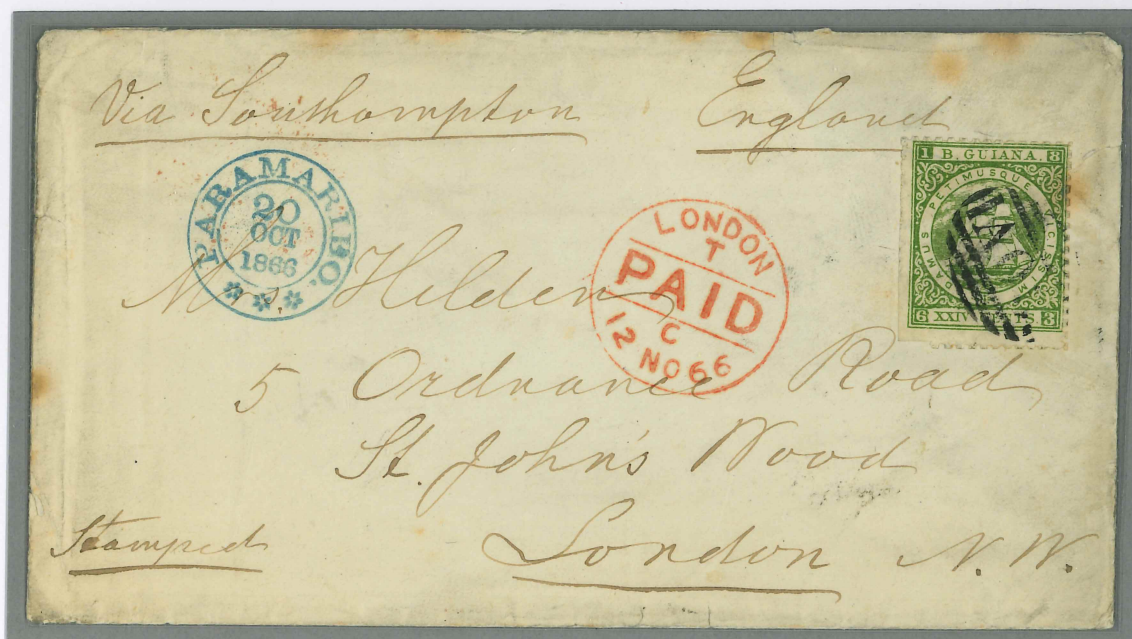 Via Southampton England
1 B. GUIANA. 8
DAMUS PETIMUSQUE VICISSIM
6 XXIV CENTS. 3
PARAMARIBO.
20
OCT
1866
LONDON
T
PAID
C
12 NO 66
Mrs. Hilden
5 Ordnance Road
St. John's Wood
Stamped London N. W.